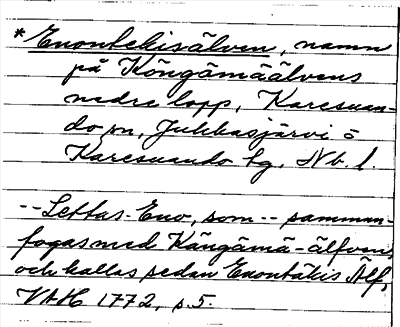 * Enontekisälven, namn
på Köngämäälvens
nedre lopp, Karesuan-
do sn, Jukkasjärvi o
Karesuando tg, Nb. l.
-- Lettas-Eno, som -- samman-
fogas med Kängämä-älfven,
och kallas sedan Enontäkis Älf,
VAH 1772, s. 5.